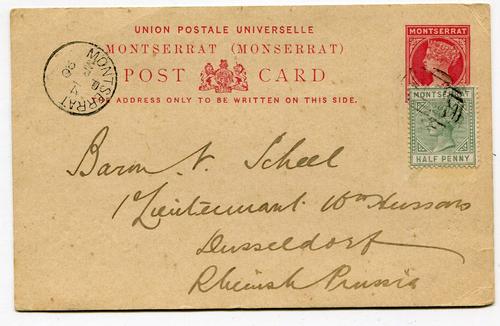 UNION POSTALE UNIVERSELLE
MONTSERRAT (MONSERRAT)
POST CARD
THE ADDRESS ONLY TO BE WRITTEN ON THIS SIDE.
MONTSERRAT
MONTSERRAT
MONTSERRAT
HALF PENNY
Baron v. Scheel
1 Lieutenant Wm Hussars
Dusseldorf
Rhenish Prussia